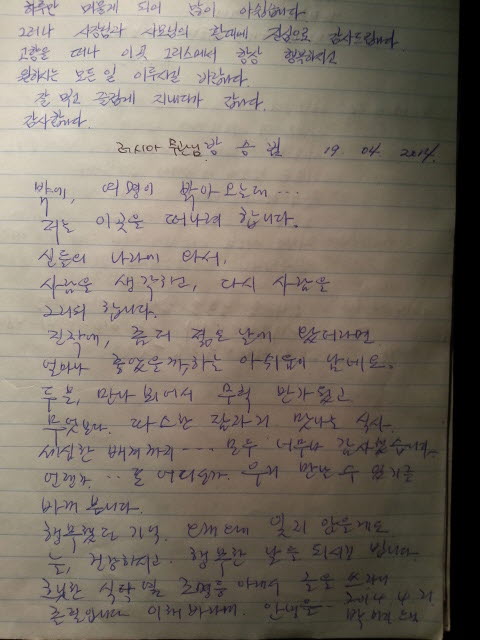 하루만 머물게 되어 많이 아쉽습니다
그러나 사장님과 사모님의 환대에 진심으로 감사드립니다
고향을 떠나 이곳 그리스에서 항상 행복하시고
원하시는 모든 일 이루시길 바랍니다.
잘 먹고 즐겁게 지내다가 갑니다.
감사합니다.
러시아 방 승 19. 04. 2014.
밖에, 여명이 밝아 오는데...
저는 이곳을 떠나려 합니다.
신들의 나라에 와서,
사람을 생각하고, 다시 사람을
그리워 합니다.
진작에, 좀더 젊은 날에 왔더라면
얼마나 좋았을까하는 아쉬움이 남네요.
두분, 만나 뵈어서 무척 반가웠고
무엇보다. 따스한 담과 맛나는 식사.
세심한 배려까지.... 모두 너무나 감사했습니다.
언젠가... 또 어디선가. 우리 만날 수 있기를
바래 봅니다.
행복했던 기억. 오래 잊지 않을게요
늘, 건강하시고. 행복한 날들 되시길 빕니다.
식탁 조명등 아래서 글을
안녕을... 2014 4. 21
박